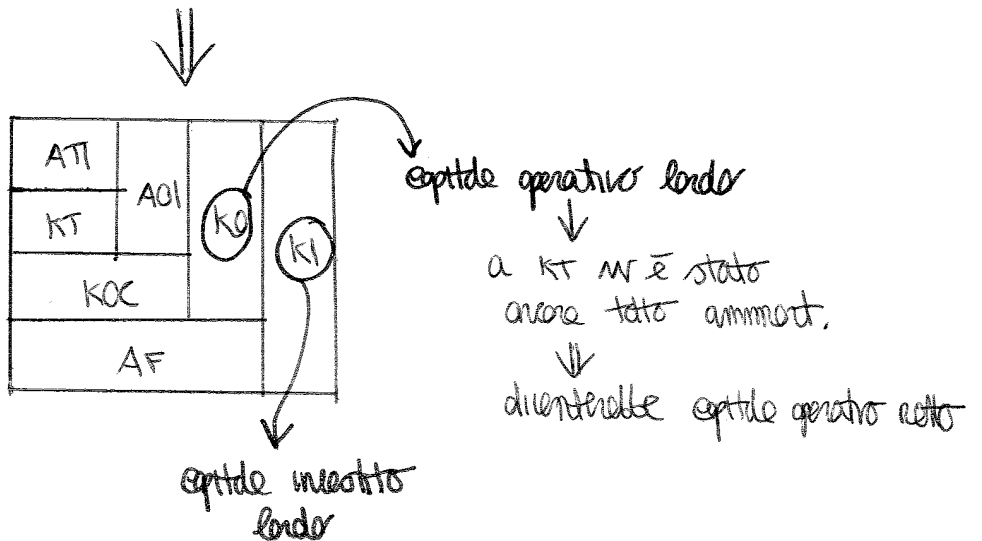 ATI
AOI
KT
KO
KI
KOC
AF
capitale operativo lordo
a KT nn è stato
ancora tolto ammort.
diventerebbe capitale operativo netto
capitale investito
lordo